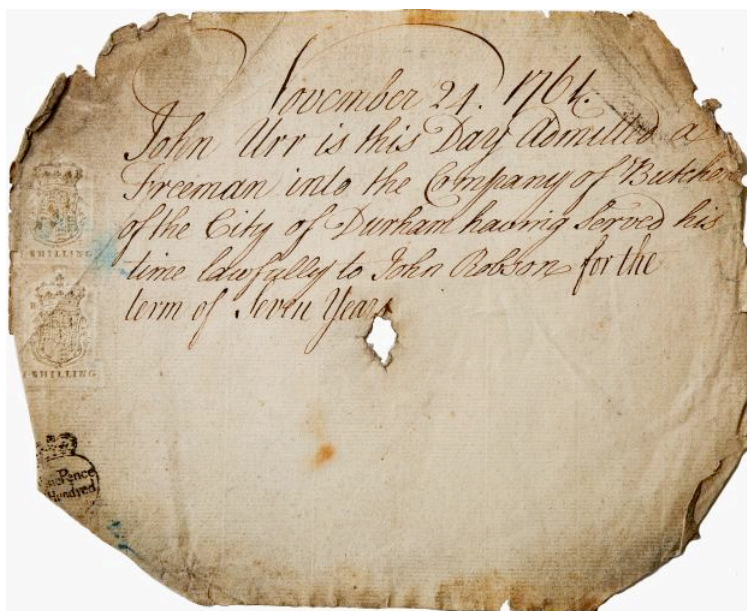 November 24. 1761.
John Urr is this Day Admitted a
Freeman into the Company of Butchers
of the City of Durham having Served his
time lawfully to John Robson for the
term of Seven Years
SHILLING
SHILLING
Pence
Hundred